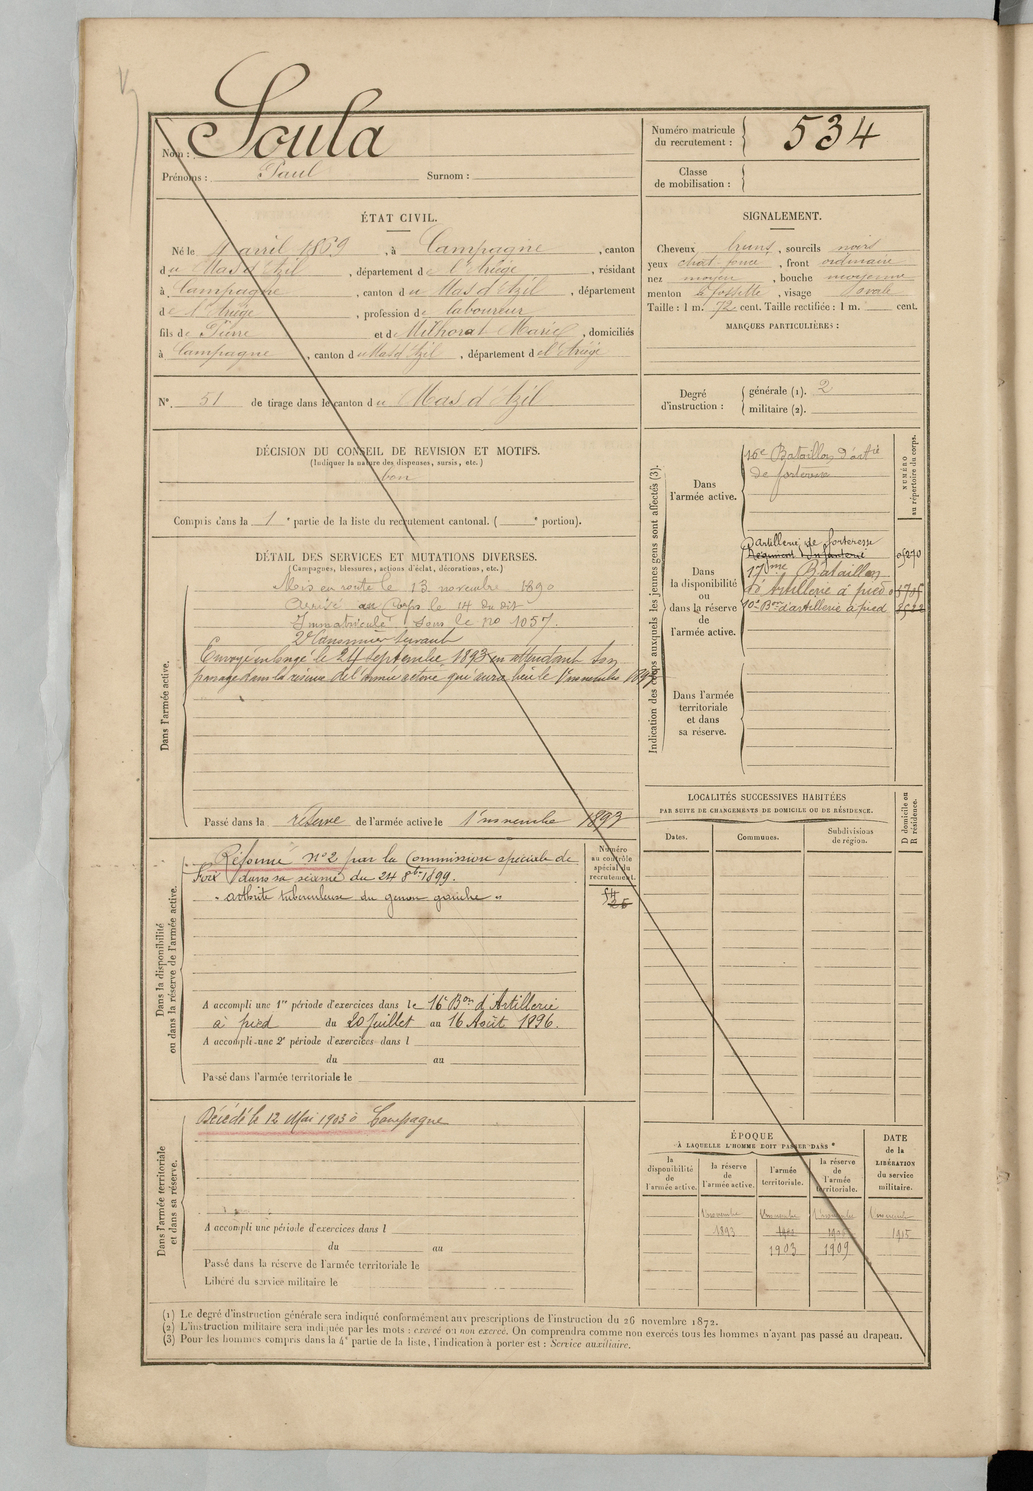 Nom : Soula
Prénoms : Paul Surnom :
Numéro matricule
du recrutement : 534
Classe
de mobilisation :
ÉTAT CIVIL.
Né le avril , à Campagne , canton
du Mas d'Azil , département de l'Ariège , résidant
à Campagne , canton du Mas d'Azil , département
de l'Ariège , profession de laboureur
fils de Pierre et de Marie , domiciliés
à Campagne , canton du Mas d'Azil , département de l'Ariège
N° 51 de tirage dans le canton du Mas d'Azil
SIGNALEMENT.
Cheveux bruns , sourcils noirs
yeux chat. foncé , front ordinaire
nez moyen , bouche moyenne
menton à fossette , visage ovale
Taille : 1 m. 72 cent. Taille rectifiée : 1 m. cent.
MARQUES PARTICULIÈRES :
Degré
d'instruction :
générale (1). 2
militaire (2).
DÉCISION DU CONSEIL DE REVISION ET MOTIFS.
(Indiquer la nature des dispenses, sursis, etc.)
bon
Compris dans la 1e partie de la liste du recrutement cantonal. ( e portion).
DÉTAIL DES SERVICES ET MUTATIONS DIVERSES.
(Campagnes, blessures, actions d'éclat, décorations, etc.)
Dans l'armée active.
Mis en route le 13 novembre 1890
Arrivé au Corps le 14 du dit
Immatriculé sous le no 1057.
2e Canonnier servant
Envoyé en congé le 24 septembre 1893 en attendant son
passage dans la réserve de l'armée active qui aura lieu le 1er novembre 1893
Passé dans la réserve de l'armée active le 1er novembre 1893
Indication des corps auxquels les jeunes gens sont affectés (3).
NUMÉRO
au répertoire du corps.
Dans
l'armée active.
16e Bataillon d'artie
de forteresse
Dans
la disponibilité
ou
dans la réserve
de
l'armée active.
d'artillerie de forteresse
Régiment d'Infanterie
17me Bataillon
d'Artillerie à pied
10e Bon d'artillerie à pied
Dans l'armée
territoriale
et dans
sa réserve.
LOCALITÉS SUCCESSIVES HABITÉES
PAR SUITE DE CHANGEMENTS DE DOMICILE OU DE RÉSIDENCE.
D domicile ou
R résidence.
Dates.
Communes.
Subdivisions
de région.
Dans la disponibilité
ou dans la réserve de l'armée active.
Numéro
au contrôle
spécial du
recrutement.
Réformé no 2 par la Commission spéciale de
Foix dans sa séance du 24 8bre 1899.
" arthrite tuberculeuse du genou gauche "
A accompli une 1re période d'exercices dans le 16e Bon d'Artillerie
à pied du 20 Juillet au 16 Août 1896.
A accompli une 2e période d'exercices dans l
du au
Passé dans l'armée territoriale le
Dans l'armée territoriale
et dans sa réserve.
Décédé le 12 Mai 1903 à Campagne
A accompli une période d'exercices dans l
du au
Passé dans la réserve de l'armée territoriale le
Libéré du service militaire le
ÉPOQUE
À LAQUELLE L'HOMME DOIT PASSER DANS
DATE
de la
LIBÉRATION
du service
militaire.
la
disponibilité
de
l'armée active.
la réserve
de
l'armée active.
l'armée
territoriale.
la réserve
de
l'armée
territoriale.
1er novembre 1er novembre 1er novembre 1er novembre
1893 1915
1903 1909
(1) Le degré d'instruction générale sera indiqué conformément aux prescriptions de l'instruction du 26 novembre 1872.
(2) L'instruction militaire sera indiquée par les mots : exercé ou non exercé. On comprendra comme non exercés tous les hommes n'ayant pas passé au drapeau.
(3) Pour les hommes compris dans la 4e partie de la liste, l'indication à porter est : Service auxiliaire.